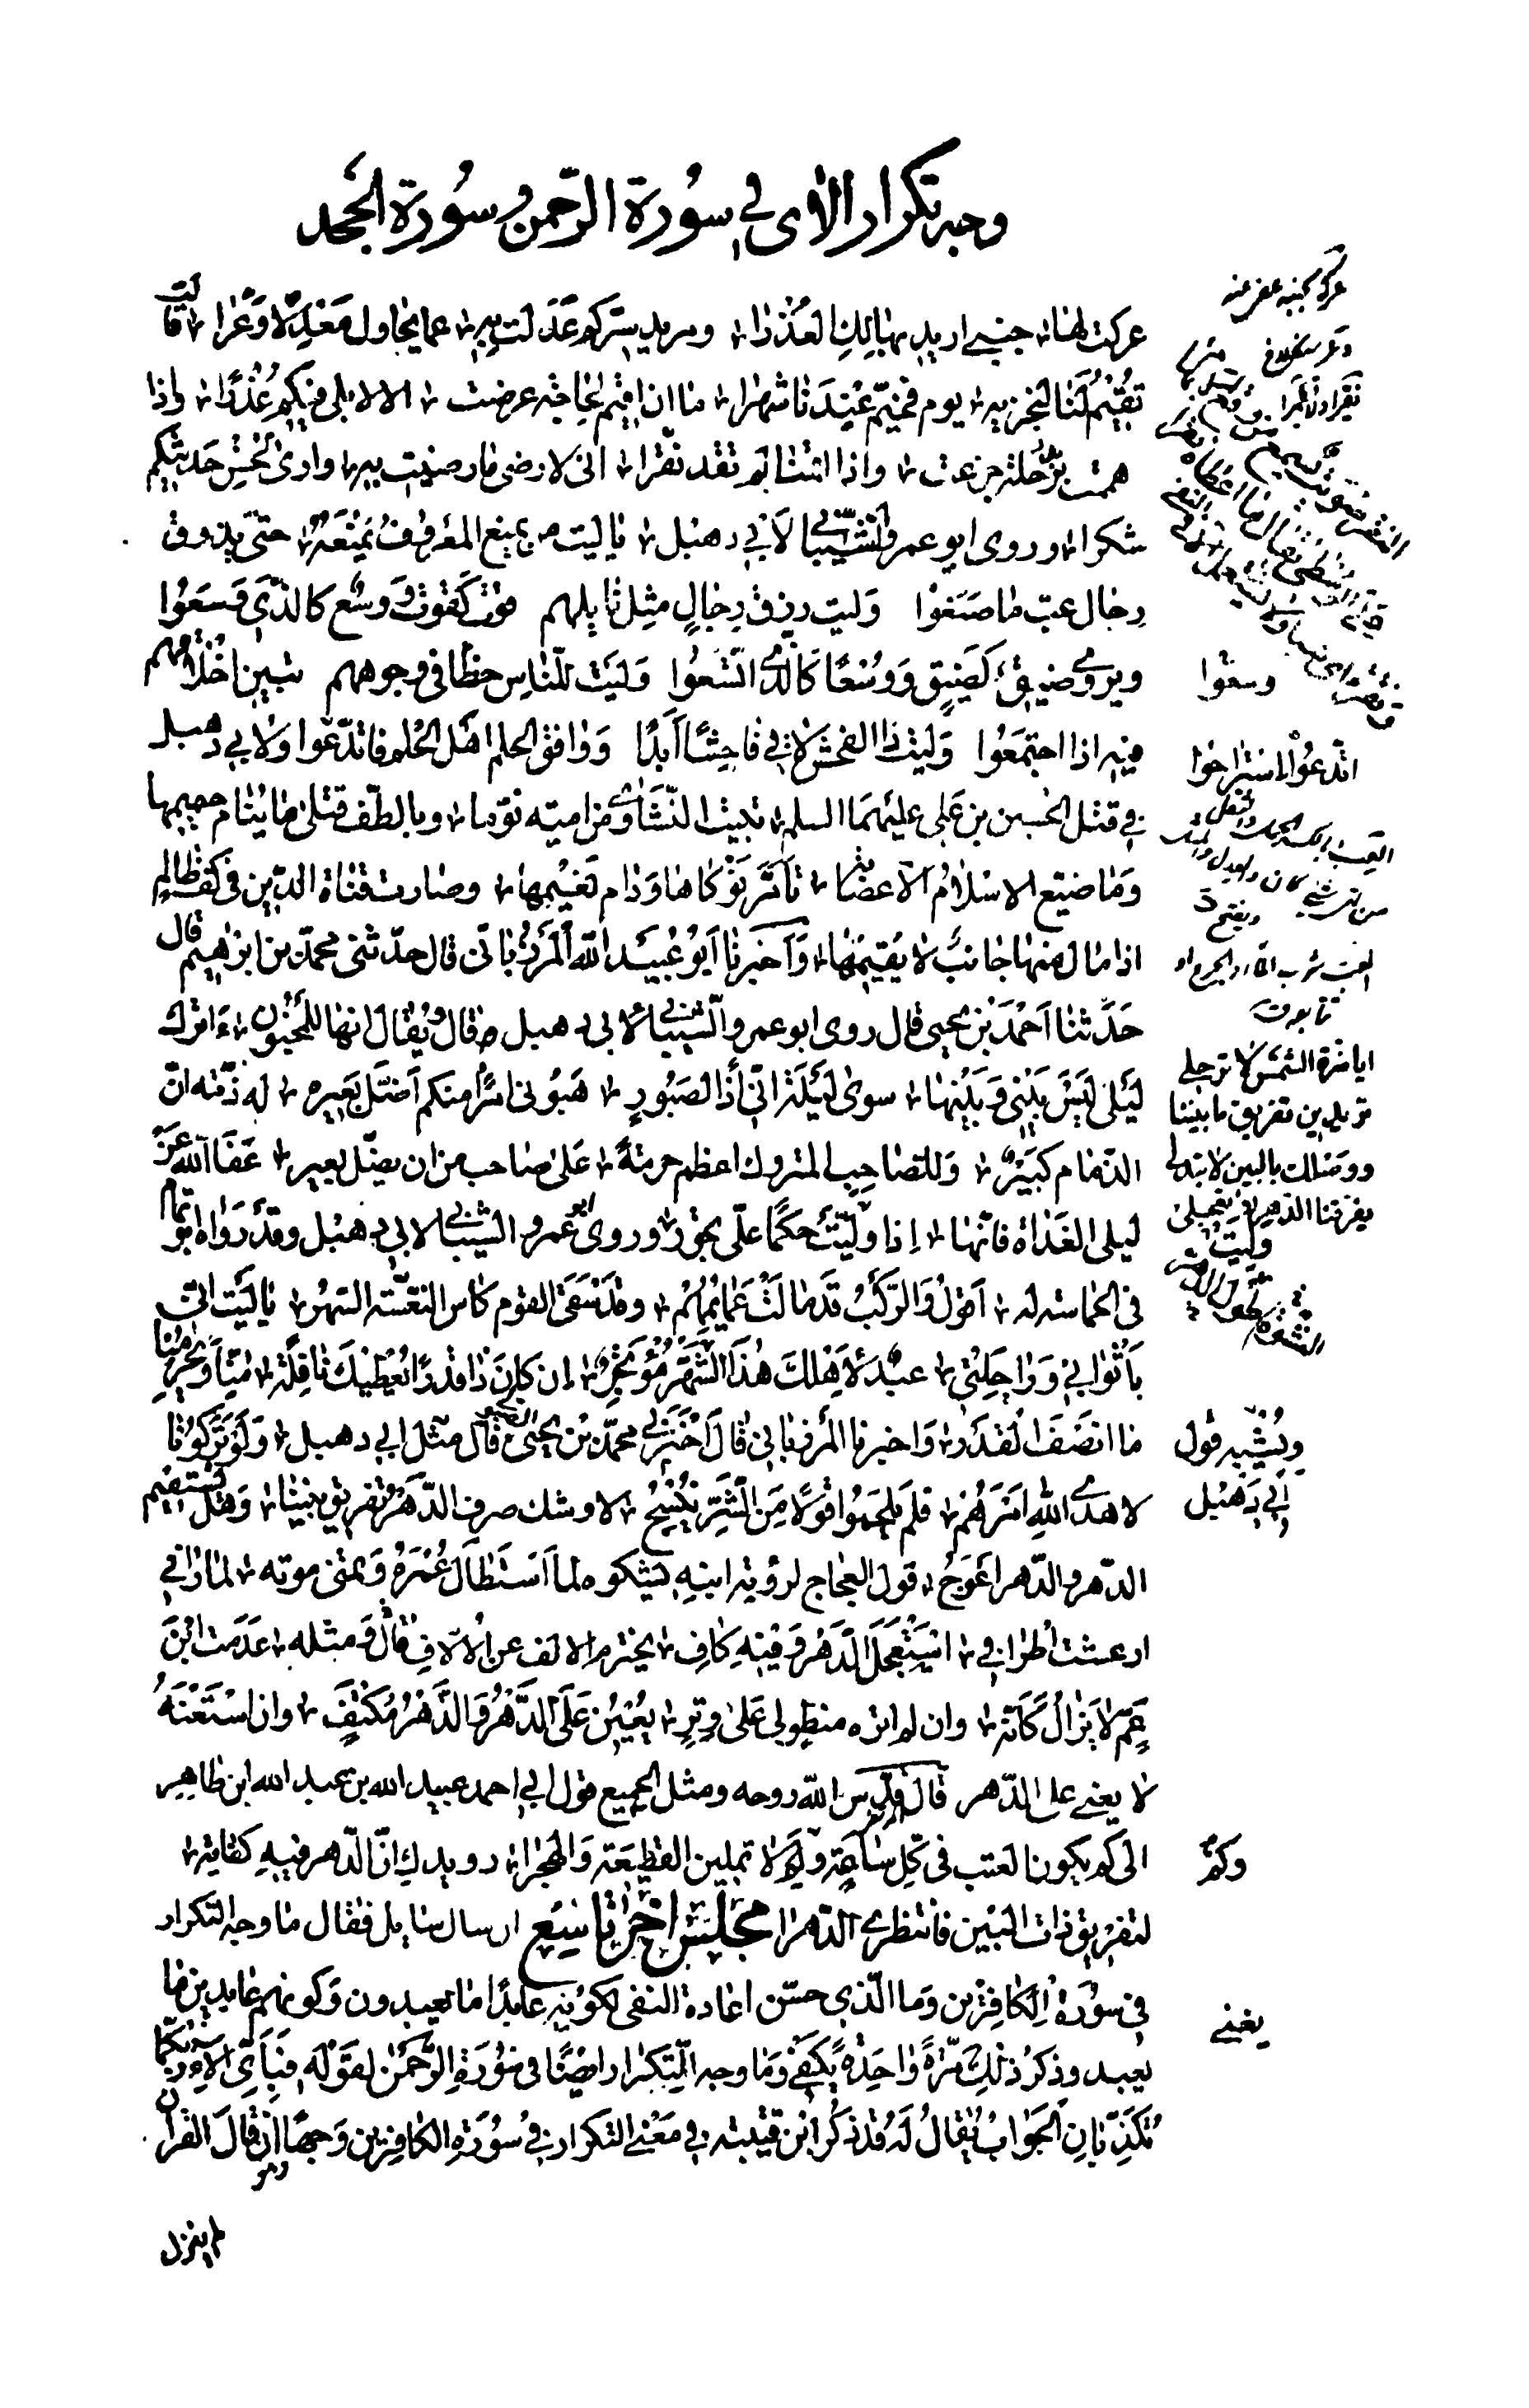 وجه تكرار الآى فى سورة الرحمن و سورة الجحد
عركت لها جنبى اريد بها بذلك لعذرا ومريد سركم عدلت به عما يحاول معدلا وعرا قالت
تقيم لنا لنجزيه يوم فخيم عندنا شهرا ما ان اقيم لحاجة عرضت الا لابلى فيكم عذرا واذا
هممت برحلة جزعت واذا اقمنا لم تقد نقرا انى لارضى ما رضيت به وارى لحسن حديثكم
شكرا وروى ابو عمرو الشيبانى لابى دهبل يا ليت من يمنع المعروف يمنعه حتى يذوق
رجال غب ما صنعوا وليت رزق رجال مثل نايلهم قوت كقوت و وسع كالذى وسعوا
ويروى ضيق كضيق ووسعا كالذى اتسعوا وليت للناس حظا فى وجوههم تبين اخلاقهم
فيه اذا اجتمعوا وليت ذا الفحش لاقى فاحشا ابدا ووافق الحلم اهل الحلم فاتدعوا ولابى دهبل
فى قتل الحسين بن على عليهما السلم تبيت النشاوى من امية نوما وبالطف قتلى ما ينام حميمها
وما ضيع الاسلام الا عصابة تأمر نوكاها ودام نعيمها وصارت قناة الدين فى كف ظالم
اذا مال منها جانب لا يقيمها واخبرنا ابو عبيد الله المرزبانى قال حدثنى محمد بن ابرهيم قال
حدثنا احمد بن يحيى قال روى ابو عمرو الشيبانى لابى دهبل قال ويقال انها للمجنون ءاترك
ليلى ليس بينى وبينها سوى ليلة انى اذا لصبور هبونى امرأ منكم اضل بعيره له ذمة ان
الذمام كبير وللصاحب المتروك اعظم حرمة على صاحب من ان يضل بعير عفا الله عن
ليلى الغداة فانها اذا وليت حكما على تجور وروى ابو عمرو الشيبانى لابى دهبل وقد رواه ابو تمام
فى الحماسة له اقول والركب قد مالت عمايمهم وقد سقى القوم كاس النعسة السهر يا ليت انى
باثوابى وراحلتى عبد لاهلك هذا الشهر مؤتجر ان كان ذا قدرا يعطيك نافلة منا ويحرمنا
ما انصف القدر واخبرنا المرزبانى قال اخبرنى محمد بن يحيى الصولى قال مثل ابى دهبل ولو تركونا
لا هدى الله امرهم فلم يلحموا قولا من الشر ينسج لاوشك صرف الدهر تفريق بيننا وهل يستقيم
الدهر والدهر اعوج قول العجاج لرؤبة ابنه يشكوه لما استطال عمره وتمنى موته لما رانى
ارعشت اطرافى استعجل الدهر وفيه كاف يخترم الالف عن الالاف قال ومثله عدمت ابن
عم لا يزال كانه وان لم اتره منطو لى على وتر يعين على الدهر والدهر مكتف وان استعنه
لا يعنى على الدهر قال قدس الله روحه ومثل الجميع قول ابى احمد عبيد الله بن عبد الله ابن طاهر
الى كم يكون العتب فى كل ساعة ولم لا تملين القطيعة والهجرا رويدك ان الدهر فيه كفاية
لتفريق ذات البين فانتظرى الدهرا مجلس اخر تاسع ان سال سايل فقال ما وجه التكرار
فى سورة الكافرين وما الذى حسن اعادة النفى لكونه عابدا ما يعبدون وكونهم عابدين ما
يعبد وذكر ذلك مرة واحدة يكفى وما وجه التكرار ايضا فى سورة الرحمن لقوله فباى الاء ربكما
تكذبان الجواب يقال له قد ذكر ابن قتيبة فى معنى التكرار فى سورة الكافرين وجها وهو ان قال القران
لم ينزل
وسعوا
اتدعوا استراحوا
ايا ضرة الشمس لا ترحلى
تريدين تفريق ما بيننا
ووصلك بالبين لا تبدلى
يفرقنا الدهر
وليت
ويشبه قول
ابى دهبل
وكم
يغنى